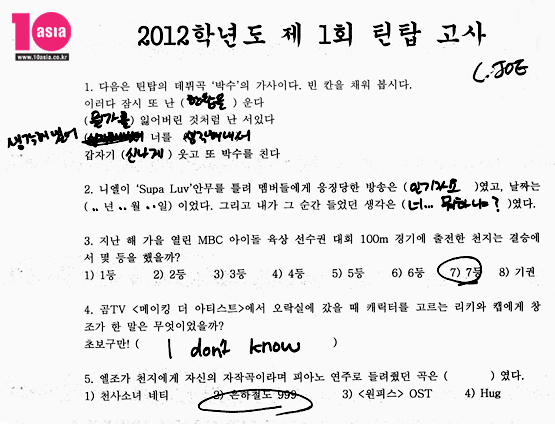 10 asia
www.10asia.co.kr
2012학년도 제 1회 틴탑 고사
C.JOE
1. 다음은 틴탑의 데뷔곡 '박수'의 가사이다. 빈 칸을 채워 봅시다.
이러다 잠시 또 난 (한숨을) 운다
(물가를) 잃어버린 것처럼 난 서있다
생각해냈어 ( ) 너를 생각해내서
갑자기 (신나게) 웃고 또 박수를 친다
2. 니엘이 'Supa Luv'안무를 틀려 멤버들에게 응징당한 방송은 (인기가요)였고, 날짜는
(..년 ..월 ..일) 이었다. 그리고 내가 그 순간 들었던 생각은 (너... 뭐하냐?)였다.
3. 지난 해 가을 열린 MBC 아이돌 육상 선수권 대회 100m 경기에 출전한 천지는 결승에
서 몇 등을 했을까?
1) 1등 2) 2등 3) 3등 4) 4등 5) 5등 6) 6등 7) 7등 8) 기권
4. 곰TV <메이킹 더 아티스트>에서 오락실에 갔을 때 캐릭터를 고르는 리키와 캡에게 창
조가 한 말은 무엇이었을까?
초보구만! ( I don't know )
5. 엘조가 천지에게 자신의 자작곡이라며 피아노 연주로 들려줬던 곡은 ( ) 였다.
1) 천사소녀 네티 2) 은하철도 999 3) <원피스> OST 4) Hug